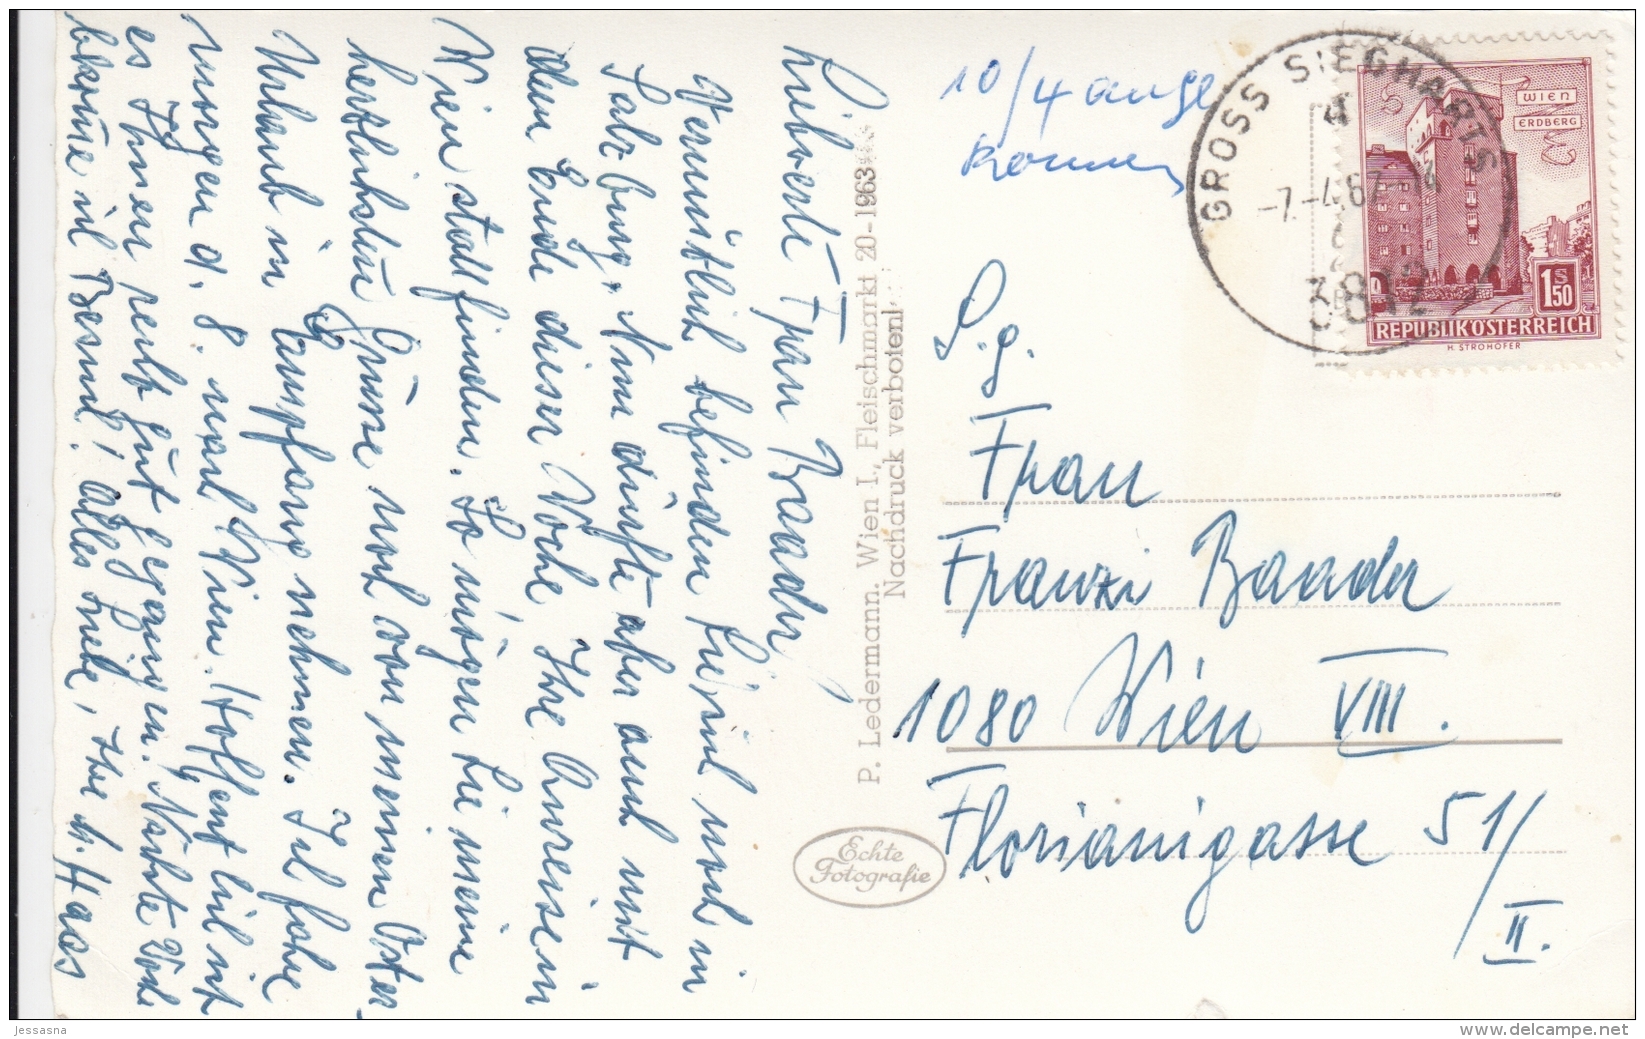 Liebwerte Frau Baader,
Vermutlich befinden Sie sich noch in
Salzburg. Nun dürfte aber auch mit
dem Ende dieser Woche, Ihre Anreise in
Wien stattfinden. So mögen Sie meine
herzlichsten Grüsse noch von meinem Oster-
Urlaub in Empfang nehmen. Ich fahre
morgen d. 8. nach Wien. Hoffentlich ist
es Ihnen recht gut gegangen. Nächste Woche
bekomme ich Besuch! alles Liebe, Ihre M. Haas
P. Ledermann. Wien I., Fleischmarkt 20-1963
Nachdruck verboten!
Echte
Fotografie
10/4 ange
kommen
GROSS SIEGHARTS
-7.-4.67-
3812
WIEN
ERDBERG
1 S 50
REPUBLIK ÖSTERREICH
H. STROHOFER
S.g.
Frau
Franzi Baader
1080 Wien VIII.
Florianigasse 51/
II.
jessasna
www.delcampe.net